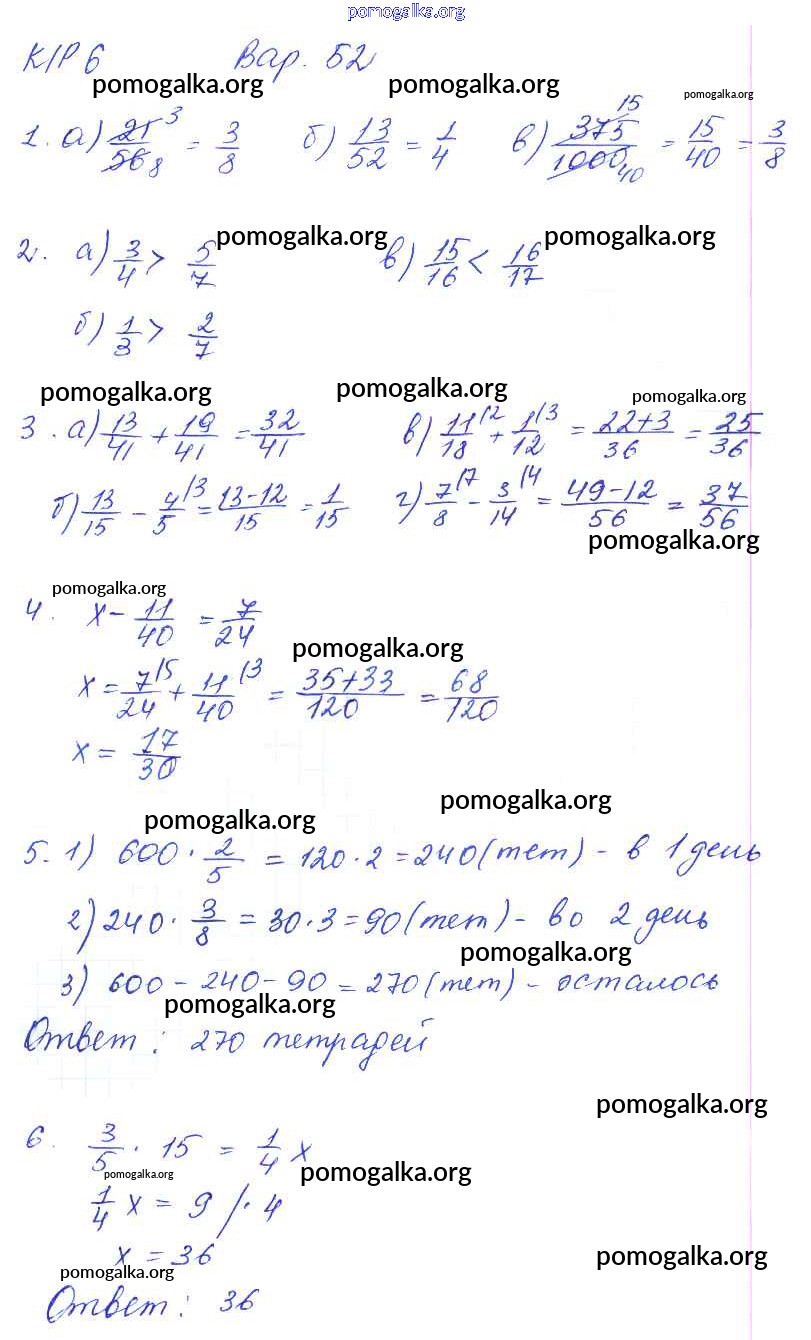 pomogalka.org
К/Р 6 Вар. 52
pomogalka.org pomogalka.org pomogalka.org
1. а) 21/56 3 8 = 3/8 б) 13/52 = 1/4 в) 375/1000 15 40 = 15/40 = 3/8
2. а) 3/4 > 5/7 pomogalka.org в) 15/16 < 16/17 pomogalka.org
б) 1/3 > 2/7
pomogalka.org pomogalka.org pomogalka.org
3. а) 13/41 + 19/41 = 32/41 в) 11/18 /2 + 1/12 /3 = 22+3/36 = 25/36
б) 13/15 - 4/5 /3 = 13-12/15 = 1/15 г) 7/8 /7 - 3/14 /4 = 49-12/56 = 37/56
pomogalka.org
pomogalka.org
4. x - 11/40 = 7/24
pomogalka.org
x = 7/24 /5 + 11/40 /3 = 35+33/120 = 68/120
x = 17/30
pomogalka.org
pomogalka.org
5. 1) 600 · 2/5 = 120 · 2 = 240 (тет) - в 1 день
2) 240 · 3/8 = 30 · 3 = 90 (тет) - во 2 день
pomogalka.org
3) 600 - 240 - 90 = 270 (тет) - осталось
pomogalka.org
Ответ: 270 тетрадей
pomogalka.org
6. 3/5 · 15 = 1/4 x
pomogalka.org pomogalka.org
1/4 x = 9 /· 4
x = 36
pomogalka.org pomogalka.org
Ответ: 36